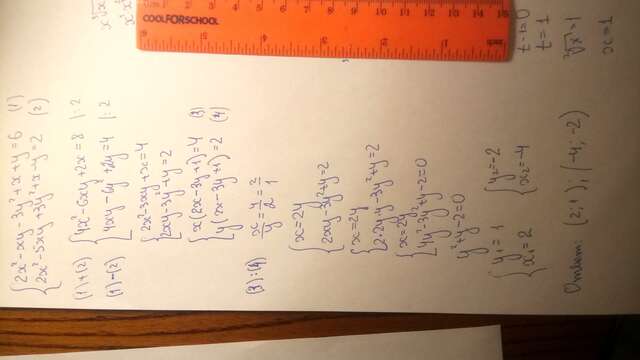 2x²-xy-3y²+x+y=6 (1)
2x²-5xy+3y²+x-y=2 (2)
(1)+(2) 4x²-6xy+2x=8 |:2
(1)-(2) 4xy-6y²+2y=4 |:2
2x²-3xy+x=4
2xy-3y²+y=2
x(2x-3y+1)=4 (3)
y(2x-3y+1)=2 (4)
(3):(4) x/y=4/2=2/1
x=2y
2xy-3y²+y=2
x=2y
2·2y·y-3y²+y=2
x=2y
4y²-3y²+y-2=0
y²+y-2=0
y₁=1 y₂=-2
x₁=2 x₂=-4
Ответ: (2;1); (-4;-2)
COOLFORSCHOOL
t-1=0
t=1
x=1